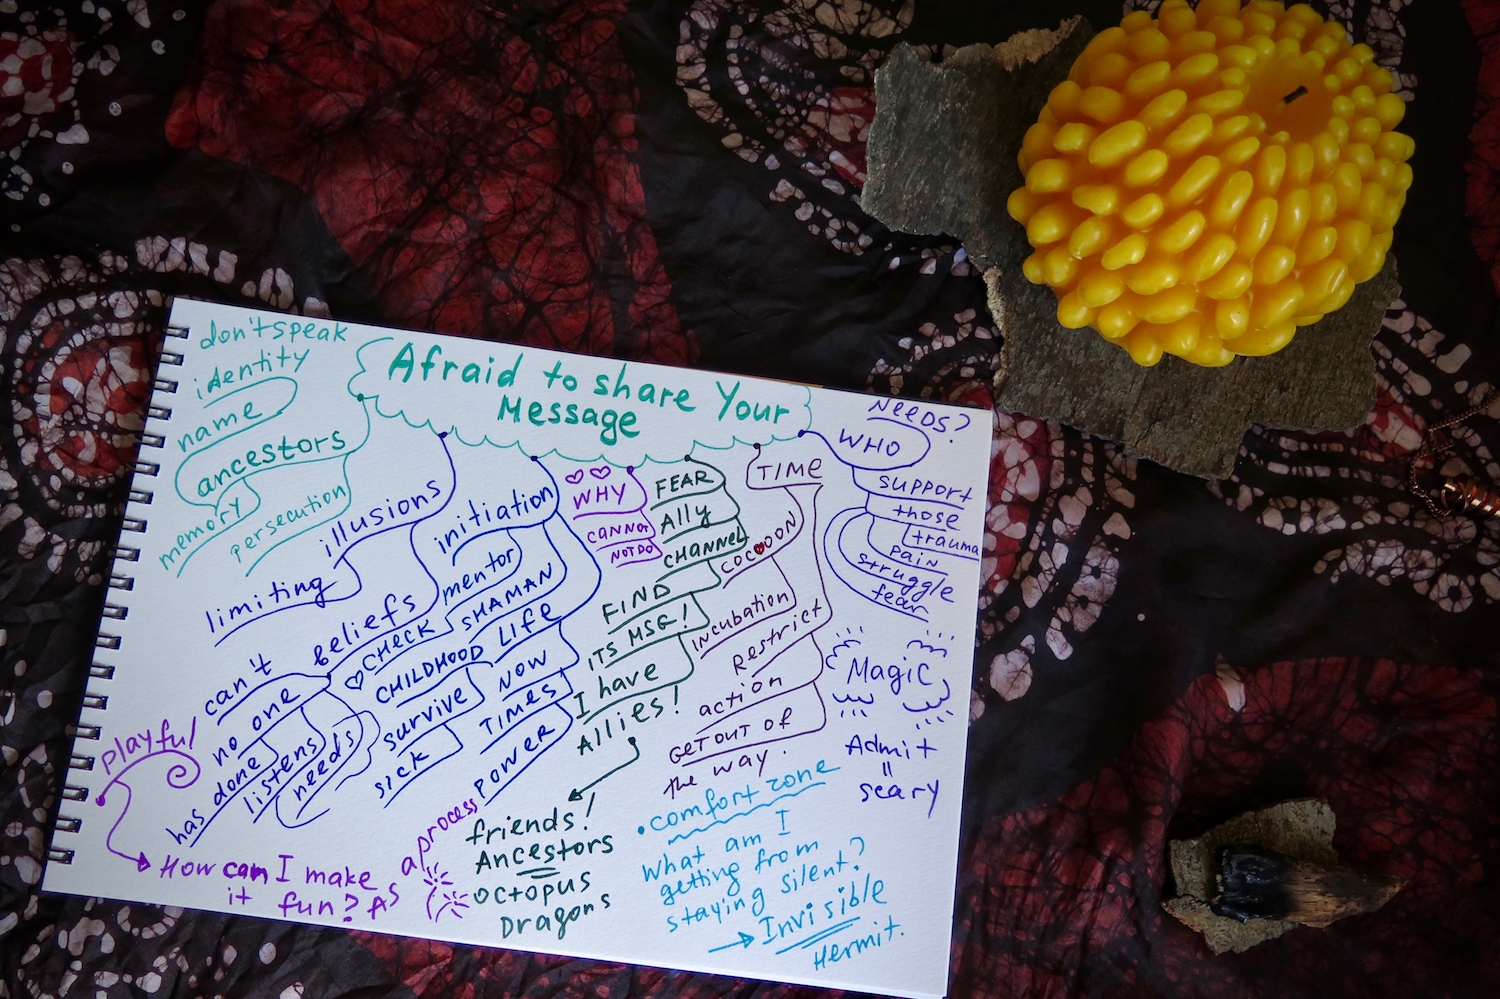 Afraid to share Your
Message
don't speak
identity
name
ancestors
memory
persecution
illusions
limiting
beliefs
can't
no one
has done
listens
needs
initiation
mentor
CHECK
SHAMAN
CHILDHOOD
LIFE
survive
sick
NOW
TIMES
POWER
WHY
CANNOT
NOT DO
FEAR
Ally
CHANNEL
FIND
ITS MSG!
I have
Allies!
friends!
Ancestors
octopus
Dragons
TIME
COCOON
Incubation
Restrict
action
GET OUT OF
the way.
NEEDS?
WHO
support
those
trauma
pain
struggle
fear
MagiC
Admit
=
scary
comfort zone
What am I
getting from
staying silent?
Invisible
Hermit.
playful
How can I make
it fun? As
a process